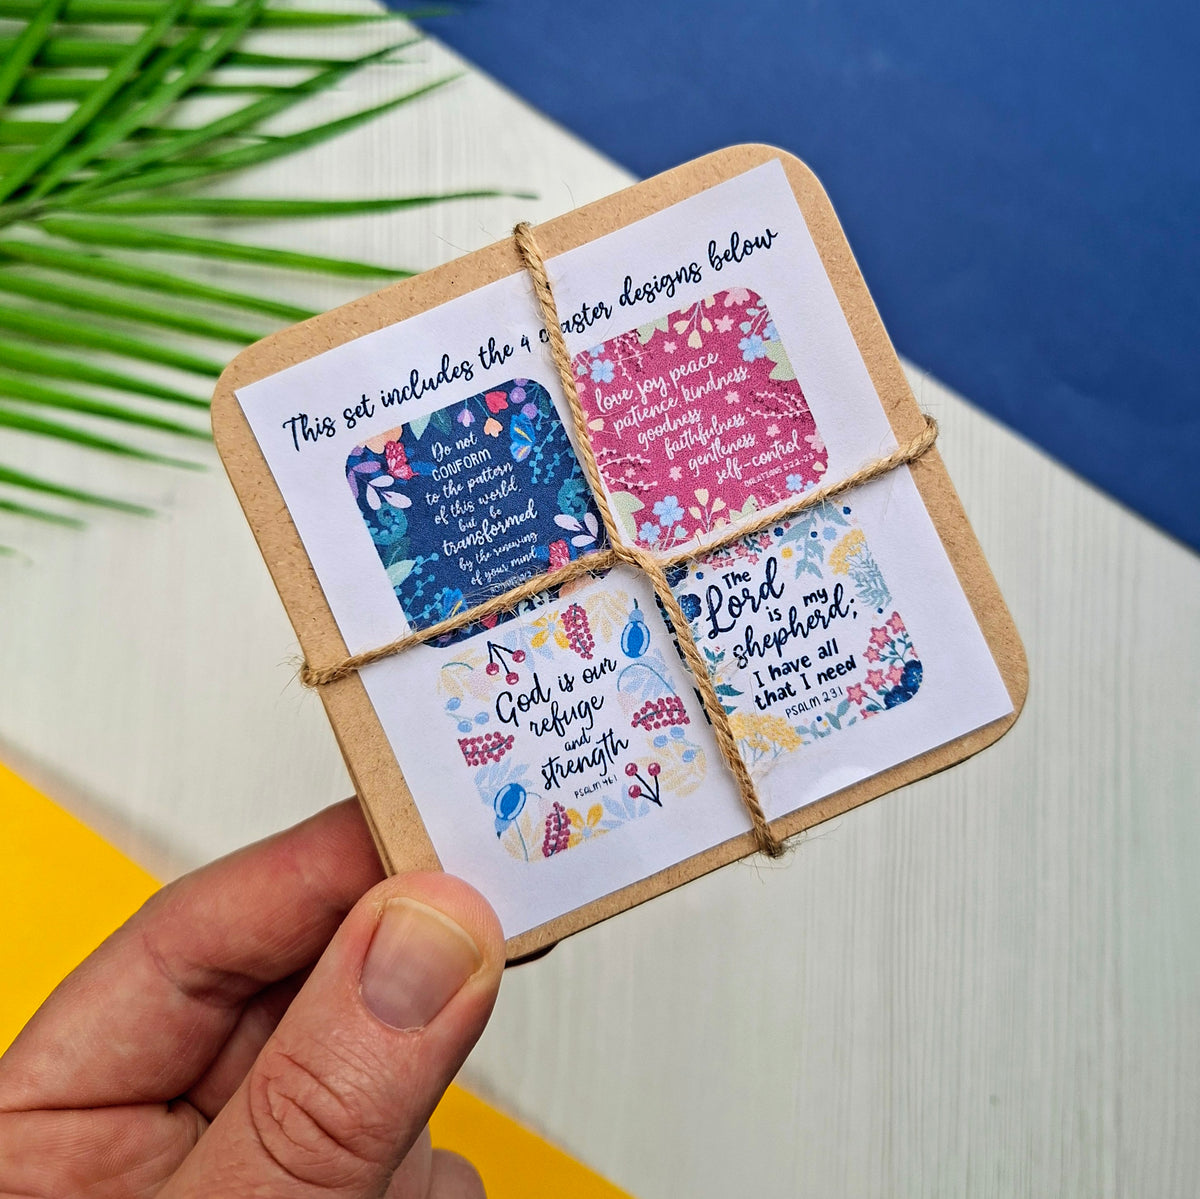 This set includes the 4 coaster designs below
Do not
CONFORM
to the pattern
of this world,
but be
transformed
by the renewing
of your mind
love joy peace
patience, kindness,
goodness
faithfulness
gentleness
self-control
GALATIANS 5:22-23
God is our
refuge
and
strength
PSALM 46:1
The
Lord
is my
shepherd;
I have all
that I need
PSALM 23:1